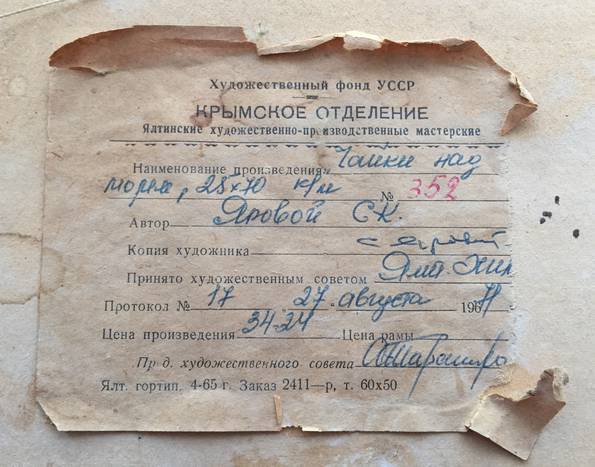 Художественный фонд УССР
КРЫМСКОЕ ОТДЕЛЕНИЕ
Ялтинские художественно-производственные мастерские
Наименование произведения Чайки над
морем, 25х70 к/м № 352
Автор Яровой С.К.
Копия художника
Принято художественным советом Ялт.
Протокол № 17 27 августа 19
Цена произведения 34-24 Цена рамы
Пр д. художественного совета
Ялт. гортип. 4-65 г. Заказ 2411—р, т. 60х50